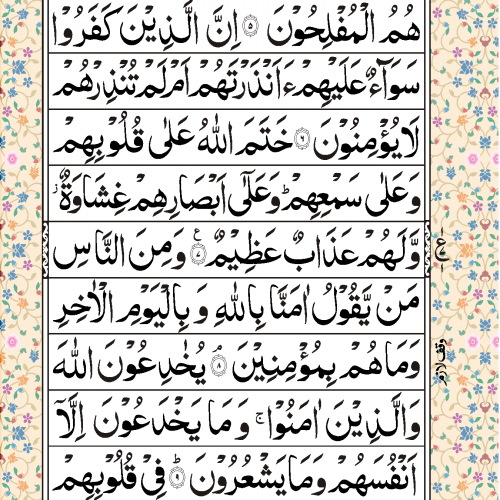 هُمُ الۡمُفۡلِحُوۡنَ ۝۵ اِنَّ الَّذِيۡنَ كَفَرُوۡا
سَوَآءٌ عَلَيۡهِمۡ ءَاَنۡذَرۡتَهُمۡ اَمۡ لَمۡ تُنۡذِرۡهُمۡ
لَا يُؤۡمِنُوۡنَ ۝۶ خَتَمَ اللّٰهُ عَلٰى قُلُوۡبِهِمۡ
وَعَلٰى سَمۡعِهِمۡ ؕ وَعَلٰٓى اَبۡصَارِهِمۡ غِشَاوَةٌ
وَّلَهُمۡ عَذَابٌ عَظِيۡمٌ ۝۷ ع وَمِنَ النَّاسِ
مَنۡ يَّقُوۡلُ اٰمَنَّا بِاللّٰهِ وَ بِالۡيَوۡمِ الۡاٰخِرِ
وَمَا هُمۡ بِمُؤۡمِنِيۡنَ ۝۸ ۘ يُخٰدِعُوۡنَ اللّٰهَ
وَالَّذِيۡنَ اٰمَنُوۡا ۚ وَ مَا يَخۡدَعُوۡنَ اِلَّاۤ
اَنۡفُسَهُمۡ وَمَا يَشۡعُرُوۡنَ ۝۹ ؕ فِىۡ قُلُوۡبِهِمۡ
وقف لازم